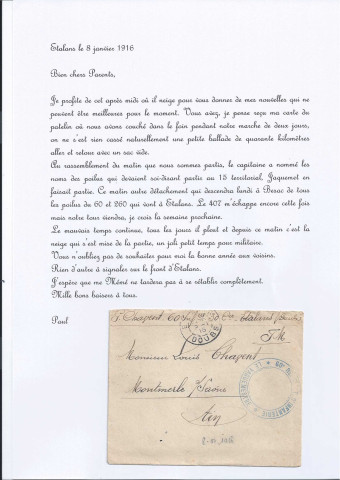 Etalans le 8 janvier 1916
Bien chers Parents,
Je profite de cet après midi où il neige pour vous donner de mes nouvelles qui ne
peuvent être meilleures pour le moment. Vous avez, je pense reçu ma carte du
patelin où nous avons couché dans le foin pendant notre marche de deux jours,
on ne s'est rien cassé naturellement une petite ballade de quarante kilomètres
aller et retour avec un sac vide.
Au rassemblement du matin que nous sommes partis, le capitaine a nommé les
noms des poilus qui devaient soi-disant partir au 15 territorial, Jaquemet en
faisait partie. Ce matin autre détachement qui descendra lundi à Besac de tous
les poilus du 60 et 260 qui vont à Etalans. Le 407 m'échappe encore cette fois
mais notre tous viendra, je crois la semaine prochaine.
Le mauvais temps continue, tous les jours il pleut et depuis ce matin c'est la
neige qui s'est mise de la partie, un joli petit temps pour militaire.
Vous n'oubliez pas de souhaiter pour moi la bonne année aux voisins.
Rien d'autre à signaler sur le front d'Etalans.
J'espère que me Mémé ne tardera pas à se rétablir complètement.
Mille bons baisers à tous.
Paul
P. Chagent 60 Etalans
DOUBS
F.M.
Monsieur Louis Chagent
Montmerle s/Saône
Ain
INFANTERIE
8-01-1916